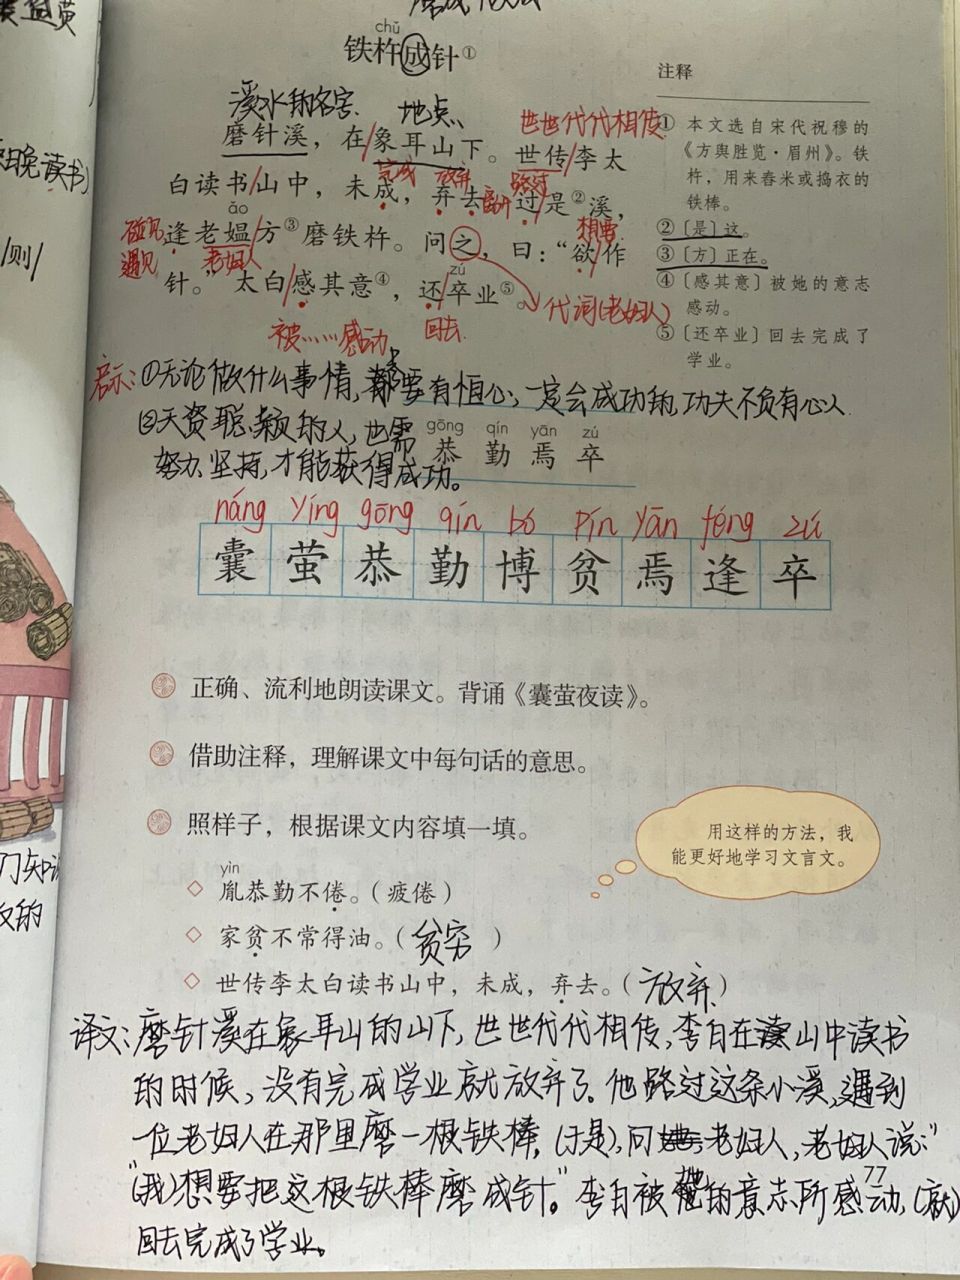 chǔ
铁杵成针①
注释
溪水的名字、 地点、
世世代代相传
磨针溪，在/象耳山下。世传/李太
完成 放弃 离开 路过
白读书/山中，未成，弃去。过/是②溪，
ǎo
碰见 遇见 老妇人 想要
逢老媪/方③磨铁杵。问之，曰：“欲/作
zú
针。”太白/感其意④，还/卒业⑤。
代词(老妇人)
被……感动 回去
① 本文选自宋代祝穆的
《方舆胜览·眉州》。铁
杵，用来舂米或捣衣的
铁棒。
②〔是〕这。
③〔方〕正在。
④〔感其意〕被她的意志
感动。
⑤〔还卒业〕回去完成了
学业。
启示：①无论做什么事情，都要有恒心，一定会成功的，功夫不负有心人
②天资聪颖的人，也需
努力、坚持，才能获得成功。
gōng qín yān zú
恭 勤 焉 卒
náng yíng gōng qín bó pín yān féng zú
囊 萤 恭 勤 博 贫 焉 逢 卒
正确、流利地朗读课文。背诵《囊萤夜读》。
借助注释，理解课文中每句话的意思。
照样子，根据课文内容填一填。
用这样的方法，我
能更好地学习文言文。
yìn
◇ 胤恭勤不倦。（疲倦）
◇ 家贫不常得油。（贫穷）
◇ 世传李太白读书山中，未成，弃去。（放弃）
译文：磨针溪在象耳山的山下，世世代代相传，李白在山中读书
的时候，没有完成学业就放弃了。他路过这条小溪，遇到
一位老妇人在那里磨一根铁棒，(于是)，问老妇人，老妇人说：“
“(我)想要把这根铁棒磨成针。”李白被她的意志所感动，(就)
77
回去完成了学业。